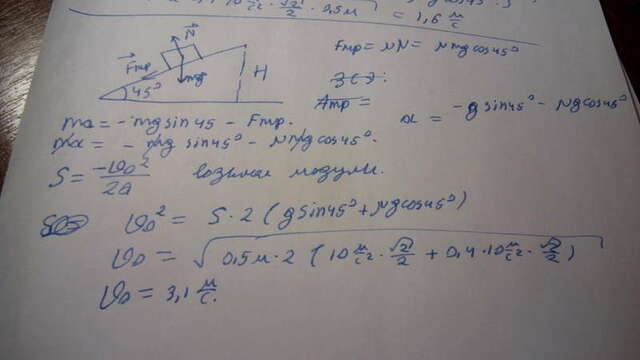 10 м/с² · √2/2 · 2,5м = 1,6 м/с
N
Fтр
mg
45°
H
Fтр = μN = μmgcos45°
ЗСЭ:
Aтр =
ma = -mgsin45 - Fтр.
a = -gsin45° - μgcos45°
ma = -mg sin45° - μmgcos45°.
S = -υ₀²/2a возьмем модули.
υ₀² = S·2(gsin45° + μgcos45°)
υ₀ = √0,5м·2 (10 м/с² · √2/2 + 0,4·10 м/с² · √2/2)
υ₀ = 3,1 м/с.